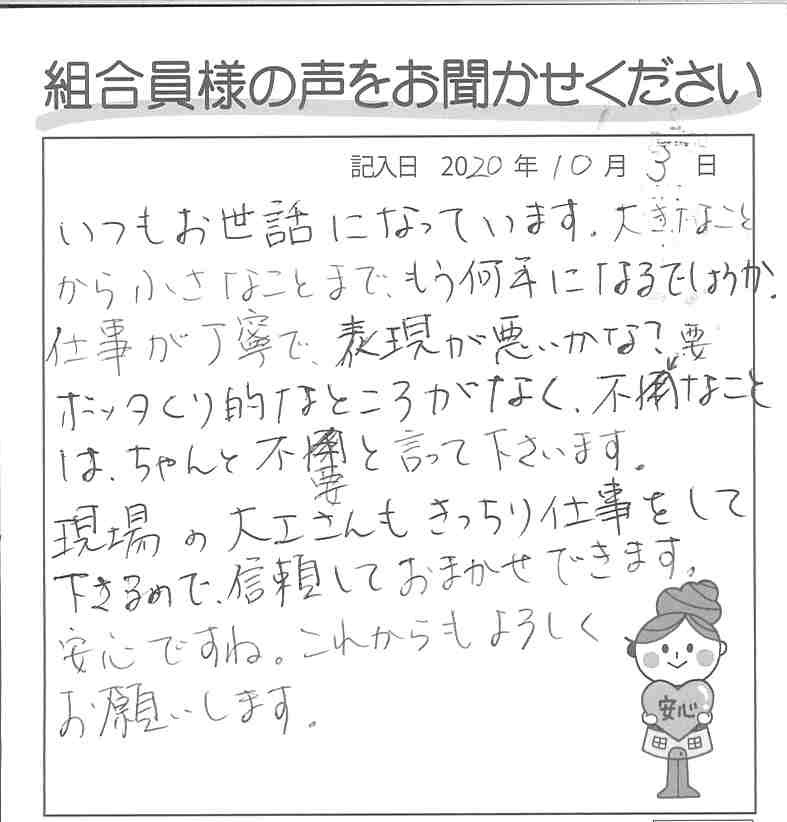 組合員様の声をお聞かせください
記入日 2020年10月3日
いつもお世話になっています。大きなこと
から小さなことまで、もう何年になるでしょうか。
仕事が丁寧で、表現が悪いかな?要
ボッタくり的なところがなく、不なこと
は、ちゃんと不要と言って下さいます。
現場の大工さんもきっちり仕事をして
下さるので、信頼しておまかせできます。
安心ですね。これからもよろしく
お願いします。
安心